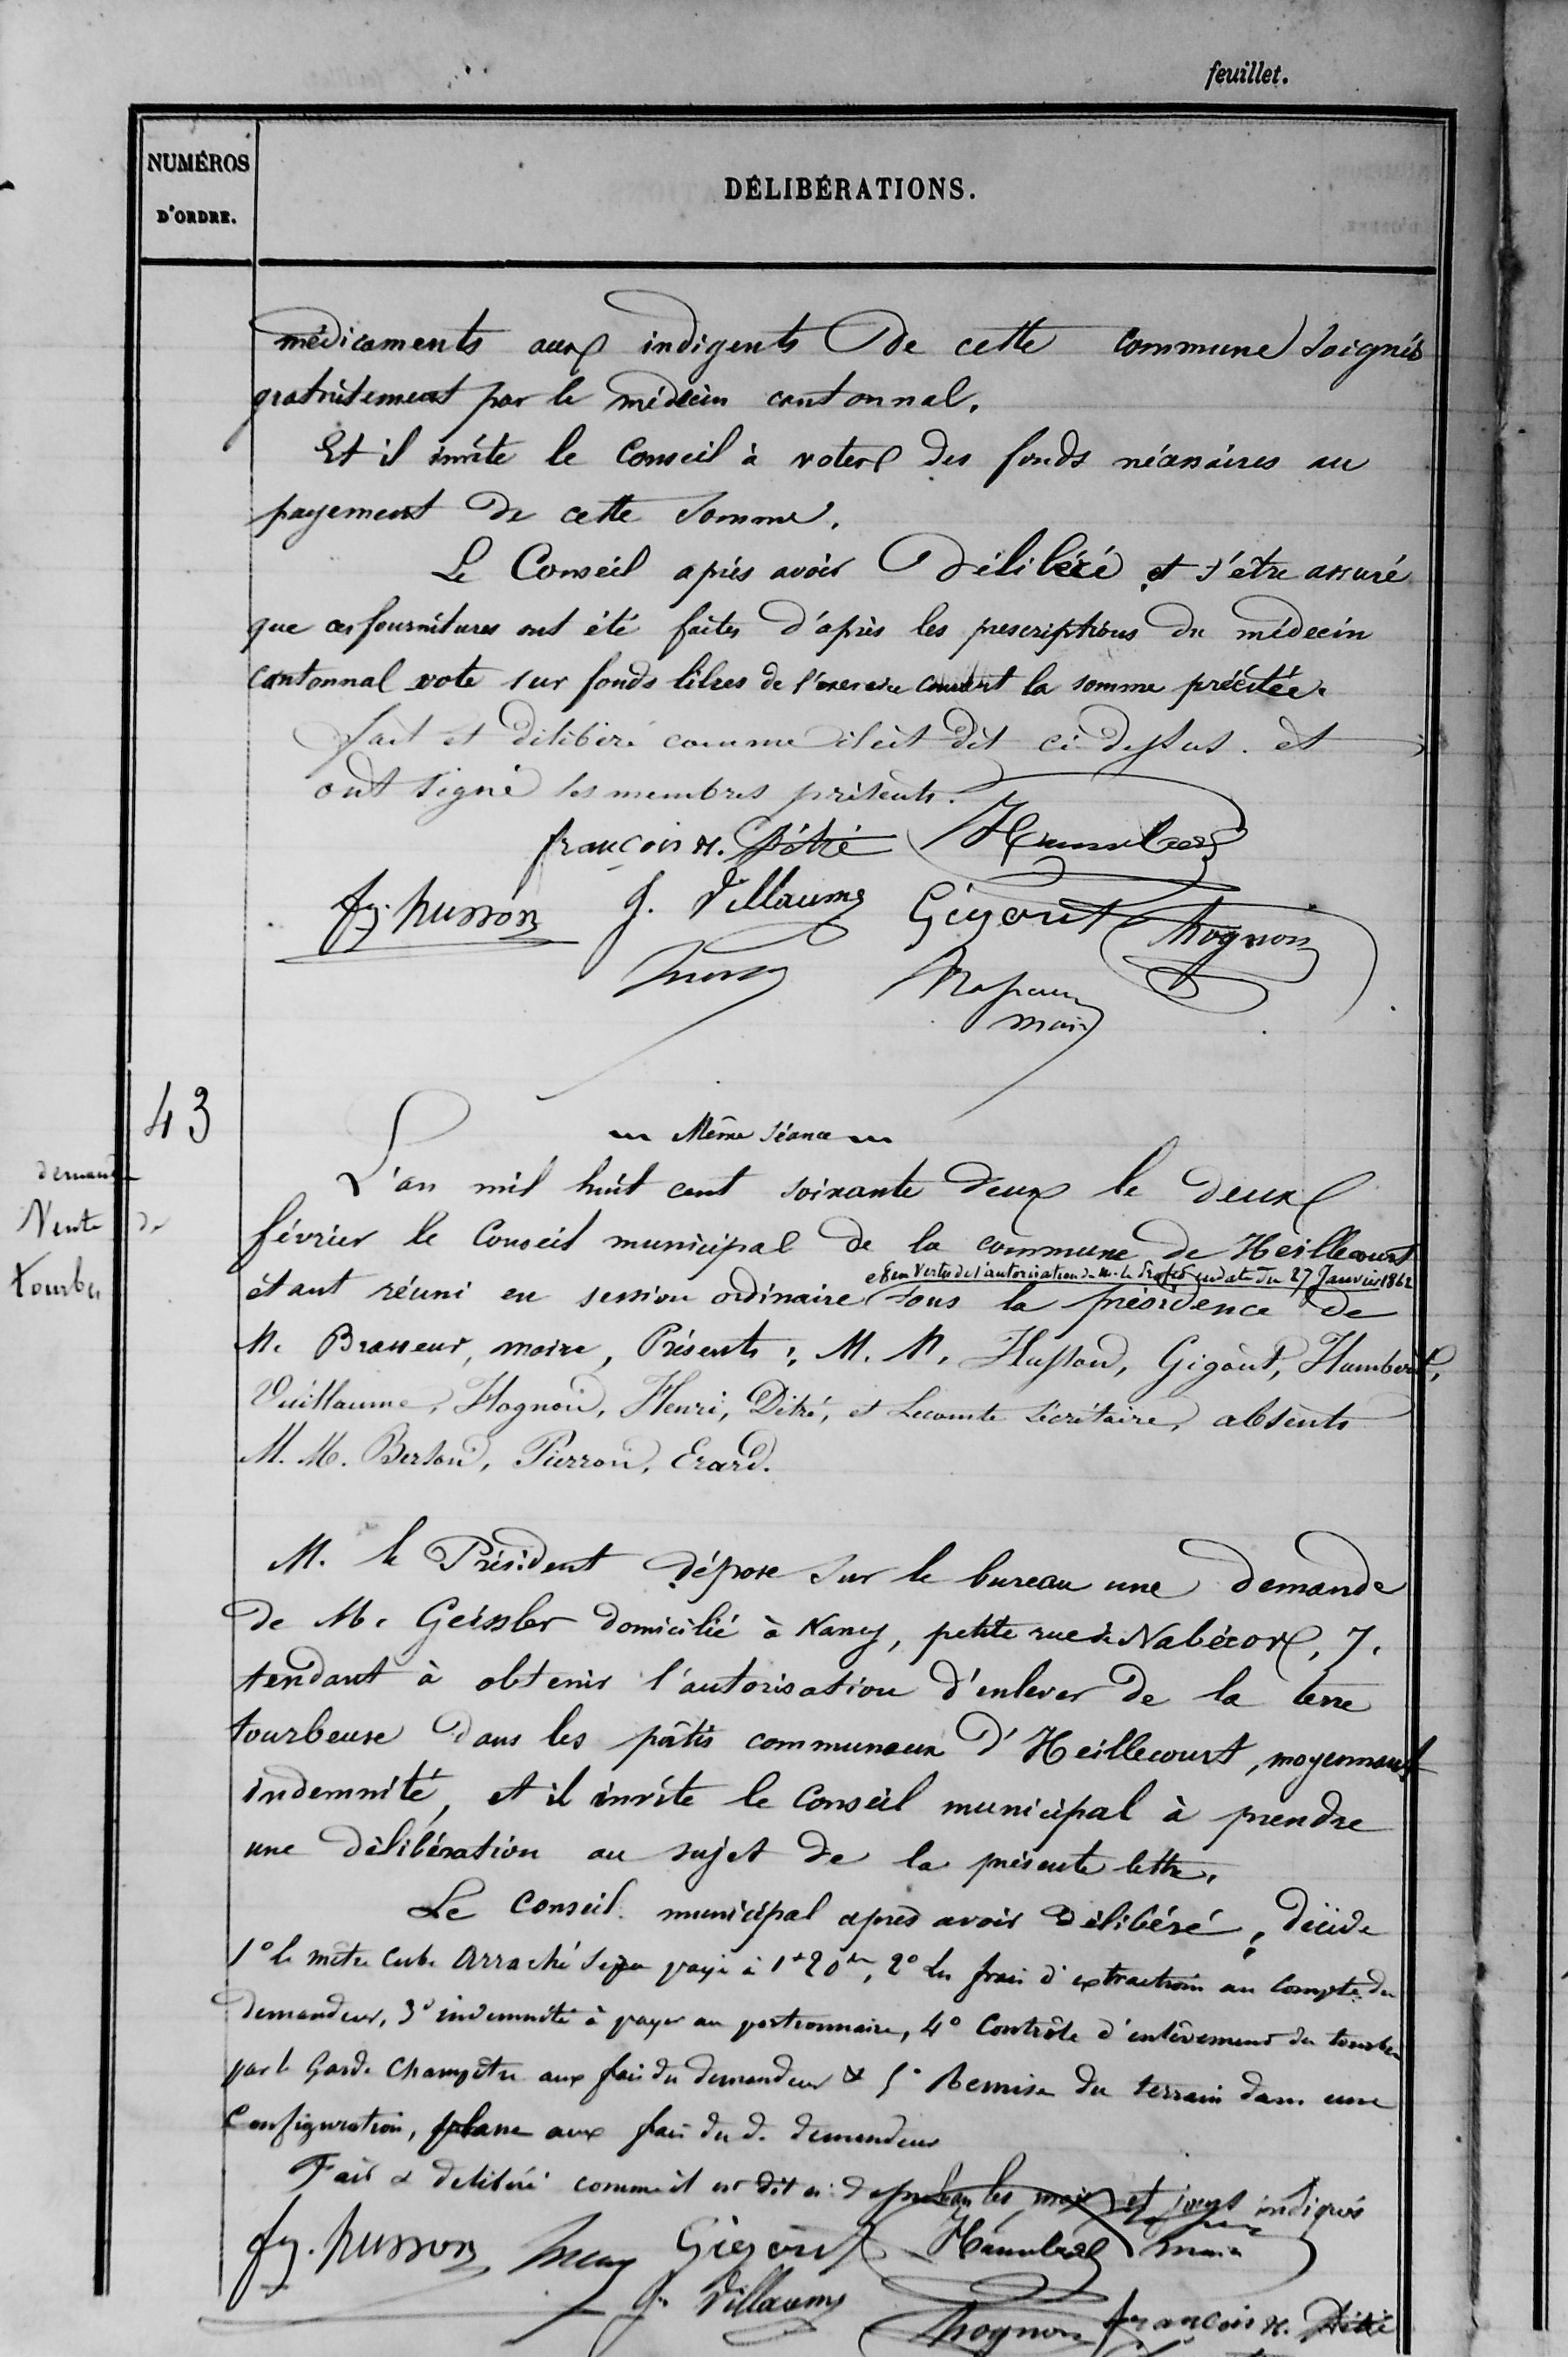 feuillet.
NUMÉROS
D'ORDRE.
DÉLIBÉRATIONS.
médicaments aux indigents de cette commune soignés
gratuitement par le médecin cantonnal.
Et il invite le Conseil à voter des fonds nécessaires au
payement de cette somme.
Le Conseil après avoir délibéré et s'être assuré
que ces fournitures ont été faites d'après les prescriptions du médecin
cantonnal vote sur fonds libres de l'exercice courant la somme précitée.
fait et délibéré comme il est dit ci dessus. et
ont signé les membres présents.
françois H. Détré Humbert
fs. husson J. Villaume Gigout hognon
maire
43
~ Même séance ~
demande
Vente de
tourbes
L'an mil huit cent soixante deux le deux
février le Conseil municipal de la commune de Heillecourt
et en vertu de l'autorisation de M. le Préfet en date du 27 Janvier 1862
étant réuni en session ordinaire sous la présidence de
M. Brasseur, maire, Présents: M. M. Husson, Gigout, Humbert,
Vuillaume, Hognon, Henri, Ditré, et Lecomte secrétaire, absents
M. M. Berson, Pierron, Erard.
M. le Président dépose sur le bureau une demande
de M. Geissler domicilié à Nancy, petite rue de Nabécor, 7.
tendant à obtenir l'autorisation d'enlever de la terre
tourbeuse dans les pâtis communaux d'Heillecourt, moyennant
indemnité, et il invite le Conseil municipal à prendre
une délibération au sujet de la présente lettre.
Le Conseil municipal après avoir délibéré, décide
1° le mètre cube arraché sera payé à 1 20, 2° les frais d'extraction au compte du
demandeur, 3° indemnité à payer au portionnaire, 4° Contrôle d'enlèvement des tourbes
par le Garde Champêtre aux frais du demandeur & 5° Remise du terrain dans une
Configuration, plane aux frais du d. demandeur
Fait & délibéré comme il est dit ci-dessus les mois et jours indiqués
fs. husson Gigout Humbert maire
J. Villaume
hognon françois H. Détré